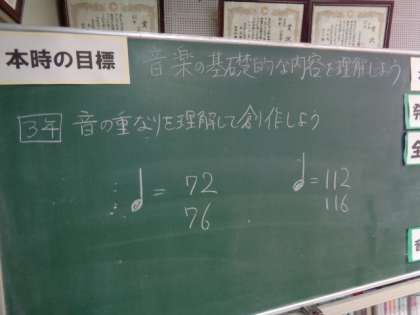 本時の目標
音楽の基礎的な内容を理解しよう
3年 音の重なりを理解して創作しよう
= 72
76
= 112
116